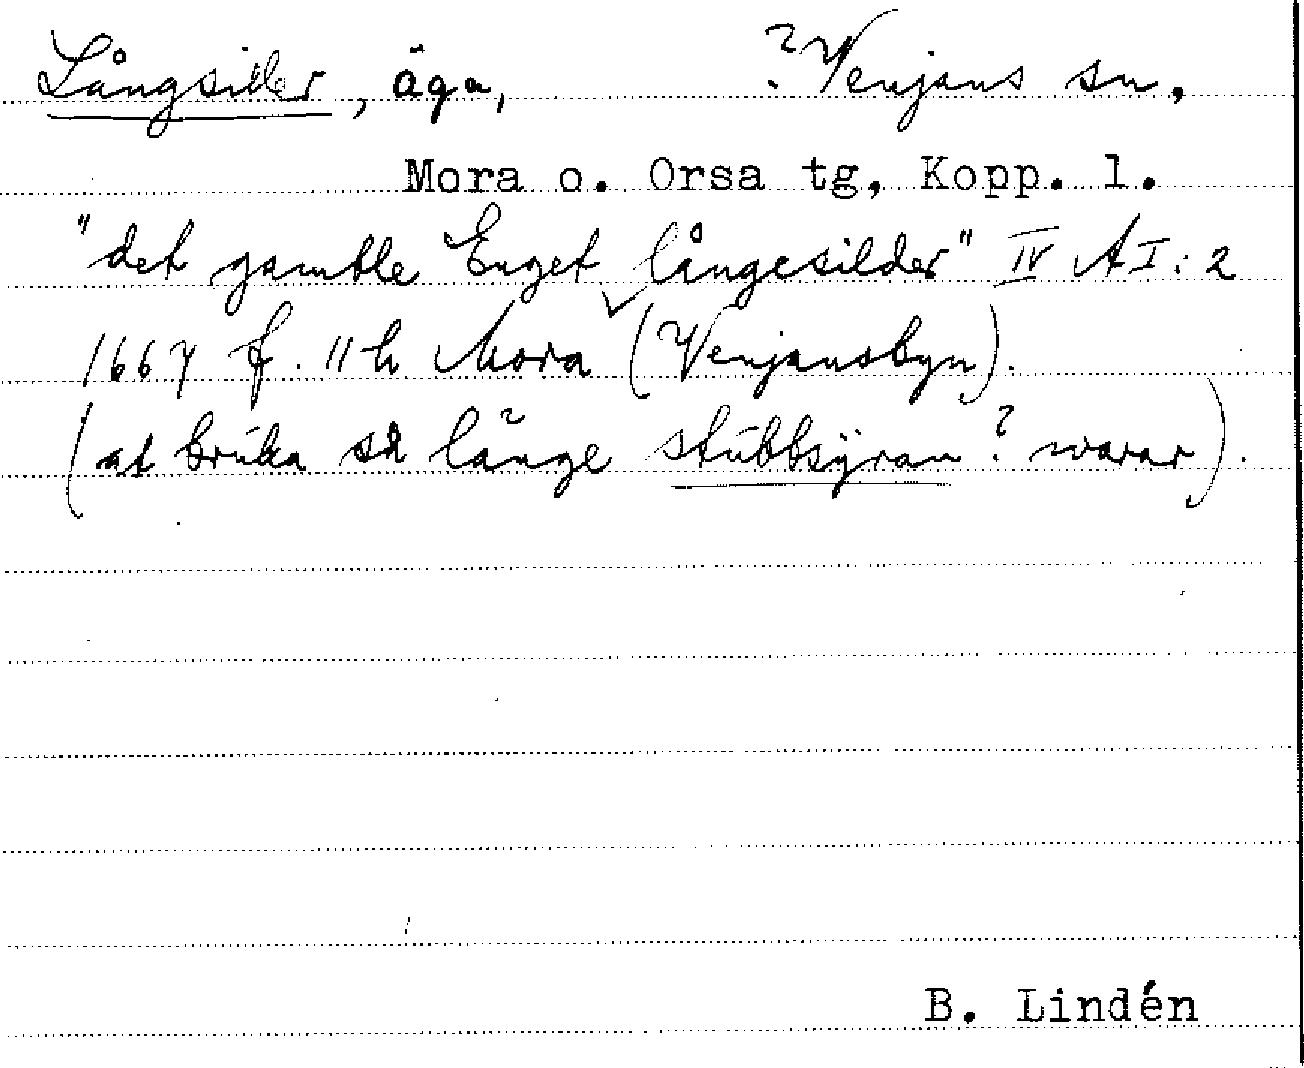 Långsilder, äga, ?Venjans sn,
Mora o. Orsa tg, Kopp. l.
"det gamble Enget långesilder" IV A I:2
1667 f. 11 h Mora (Venjansbyn).
(at bruka så länge stubbsÿran? warar).
B. Lindén